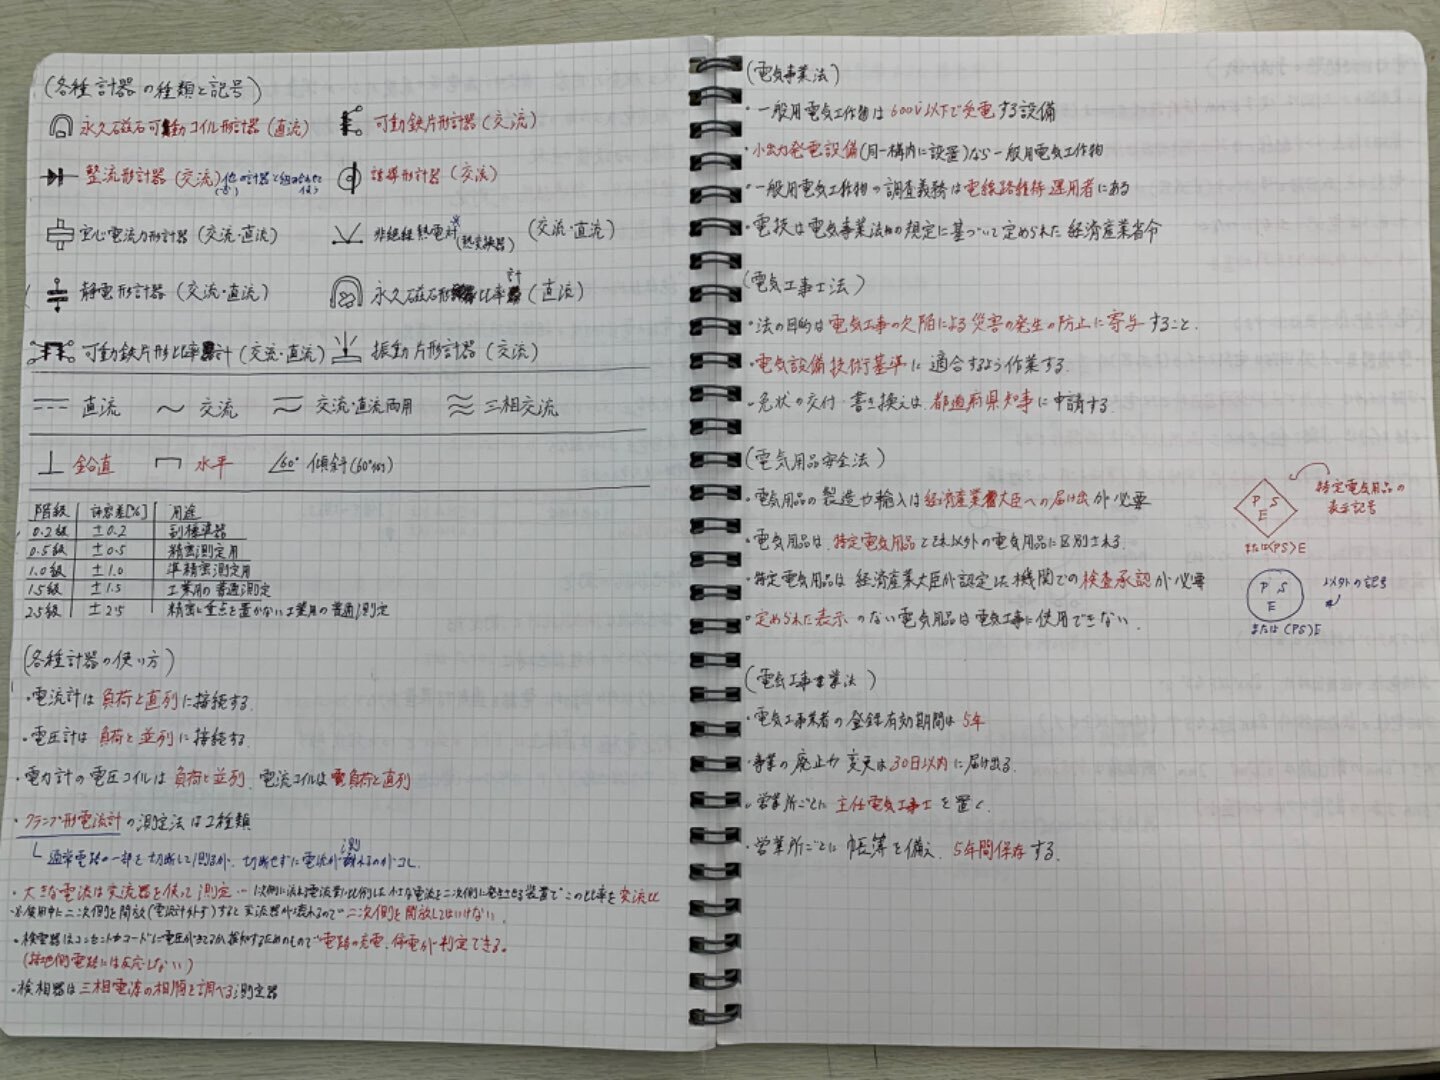 (各種計器の種類と記号)
永久磁石可動コイル形計器(直流)
可動鉄片形計器(交流)
整流形計器(交流)他の計器と組み合わせて使う
誘導形計器(交流)
空心電流力形計器(交流・直流)
非絶縁熱電計(熱変換器)(交流・直流)
静電形計器(交流・直流)
永久磁石形比率計(直流)
可動鉄片形比率計(交流・直流)
振動片形計器(交流)
直流 交流 交流・直流両用 三相交流
鉛直 水平 60° 傾斜(60°例)
階級 許容差[%] 用途
0.2級 ±0.2 副標準器
0.5級 ±0.5 精密測定用
1.0級 ±1.0 準精密測定用
1.5級 ±1.5 工業用の普通測定
2.5級 ±2.5 精密に重点を置かない工業用の普通測定
(各種計器の使い方)
・電流計は負荷と直列に接続する.
・電圧計は負荷と並列に接続する.
・電力計の電圧コイルは負荷と並列、電流コイルは負荷と直列
・クランプ形電流計の測定法は2種類
通常電路の一部を切断して測るが、切断せずに電流が測れるのがコレ.
・大きな電流は変流器を使って測定 … 1次側に流れる電流量に比例した小さな電流を二次側に発生させる装置でこの比率を変流比
※使用中に二次側を開放(電流計外す)すると変流器が壊れるので二次側を開放してはいけない.
・検電器はコンセントやコードに電圧がきてるか検知するためのもので電路の充電、停電が判定できる。
(接地側電路には反応しない)
・検相器は三相電源の相順を調べる測定器
(電気事業法)
・一般用電気工作物は600V以下で受電する設備
・小出力発電設備(同一構内に設置)なら一般用電気工作物
・一般用電気工作物の調査義務は電線路維持運用者にある
・電技は電気事業法の規定に基づいて定められた経済産業省令
(電気工事士法)
・法の目的は電気工事の欠陥による災害の発生の防止に寄与すること.
・電気設備技術基準に適合するよう作業する.
・免状の交付・書き換えは、都道府県知事に申請する.
(電気用品安全法)
・電気用品の製造や輸入は経済産業大臣への届け出が必要
・電気用品は、特定電気用品とそれ以外の電気用品に区別される.
・特定電気用品は経済産業大臣が認定した機関での検査承認が必要
・定められた表示のない電気用品は電気工事に使用できない.
P S
E
または<PS>E
特定電気用品の
表示記号
P S
E
または(PS)E
以外の記号
(電気工事業法)
・電気工事業者の登録有効期間は5年
・事業の廃止や変更は30日以内に届け出る.
・営業所ごとに主任電気工事士を置く.
・営業所ごとに帳簿を備え、5年間保存する.